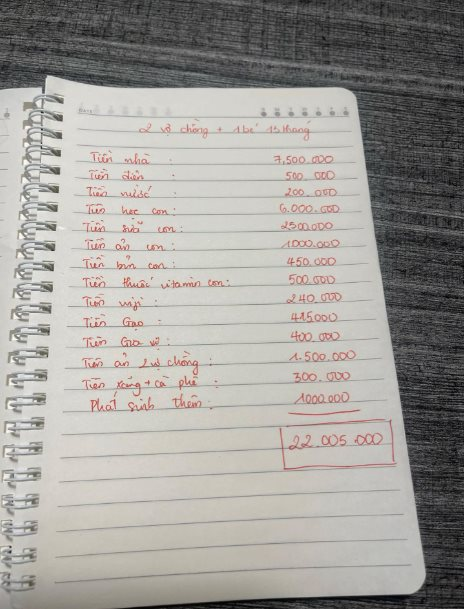 DATE
2 vợ chồng + 1 bé 15 tháng
Tiền nhà : 7,500.000
Tiền điện : 500.000
Tiền nước : 200.000
Tiền học con : 6.000.000
Tiền sữa con : 2500000
Tiền ăn con : 1000.000
Tiền bỉm con : 450.000
Tiền thuốc vitamin con : 500.000
Tiền wifi : 240.000
Tiền Gạo : 415.000
Tiền Gia vị : 400.000
Tiền ăn 2 vợ chồng : 1.500.000
Tiền xăng + cà phê : 300.000
Phát sinh thêm : 1000.000
22.005.000